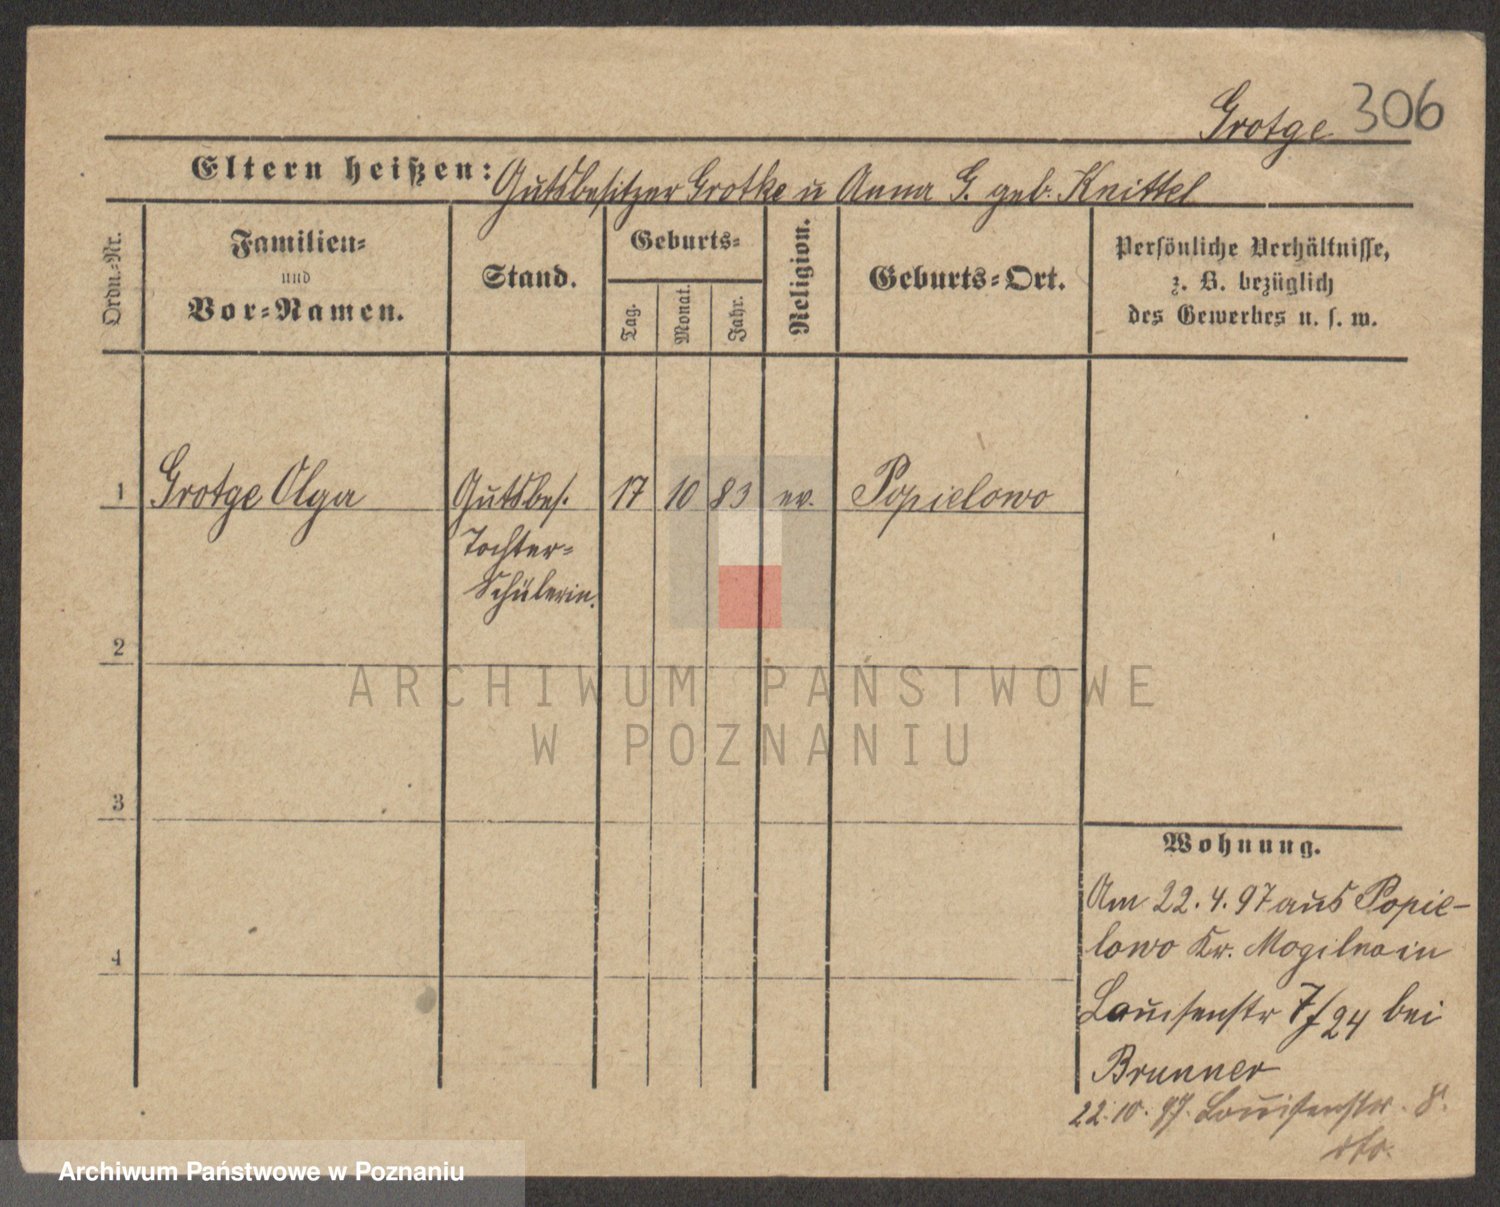 Grotge 306
Eltern heißen: Gutsbesitzer Grotke u Anna G. geb. Knittel
Ordn.-Nr.
Familien-
und
Vor-Namen.
Stand.
Geburts-
Tag.
Monat.
Jahr.
Religion.
Geburts-Ort.
Persönliche Verhältnisse,
z. B. bezüglich
des Gewerbes u. s. w.
1 Grotge Olga Gutsbes. 17 10 83 ev. Popielowo
Tochter-
Schülerin.
2
3
4
Wohnung.
Am 22.4.97 aus Popie-
lowo Kr. Mogilno in
Louisenstr 7/24 bei
Brunner
22.10.97. Louisenstr. 8.
ARCHIWUM PAŃSTWOWE
W POZNANIU
Archiwum Państwowe w Poznaniu